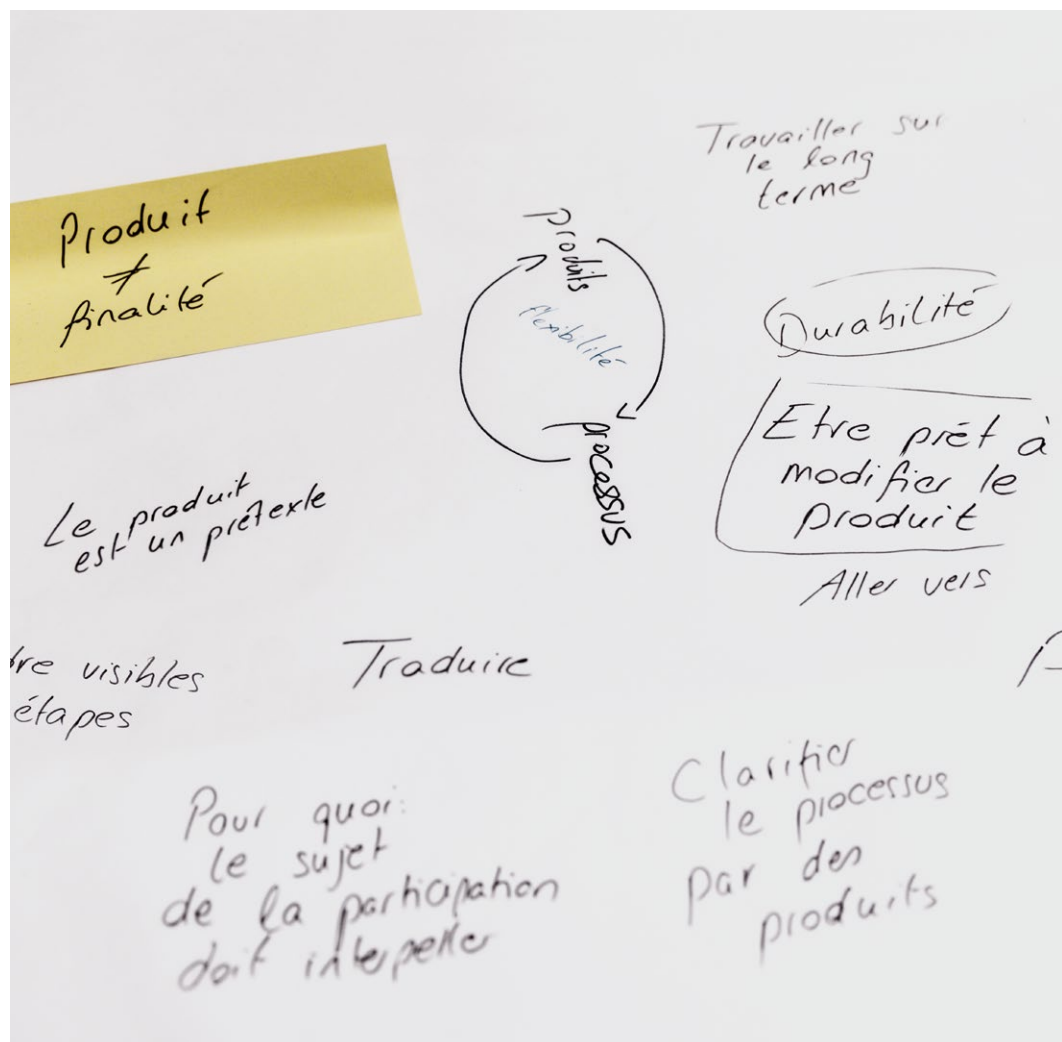 Travailler sur
le long
terme
Produit
≠
finalité
produits
flexibilité
processus
Durabilité
Etre prêt à
modifier le
produit
Aller vers
Le produit
est un prétexte
visibles
étapes
Traduire
Pour quoi:
le sujet
de la participation
doit interpeller
Clarifier
le processus
par des
produits